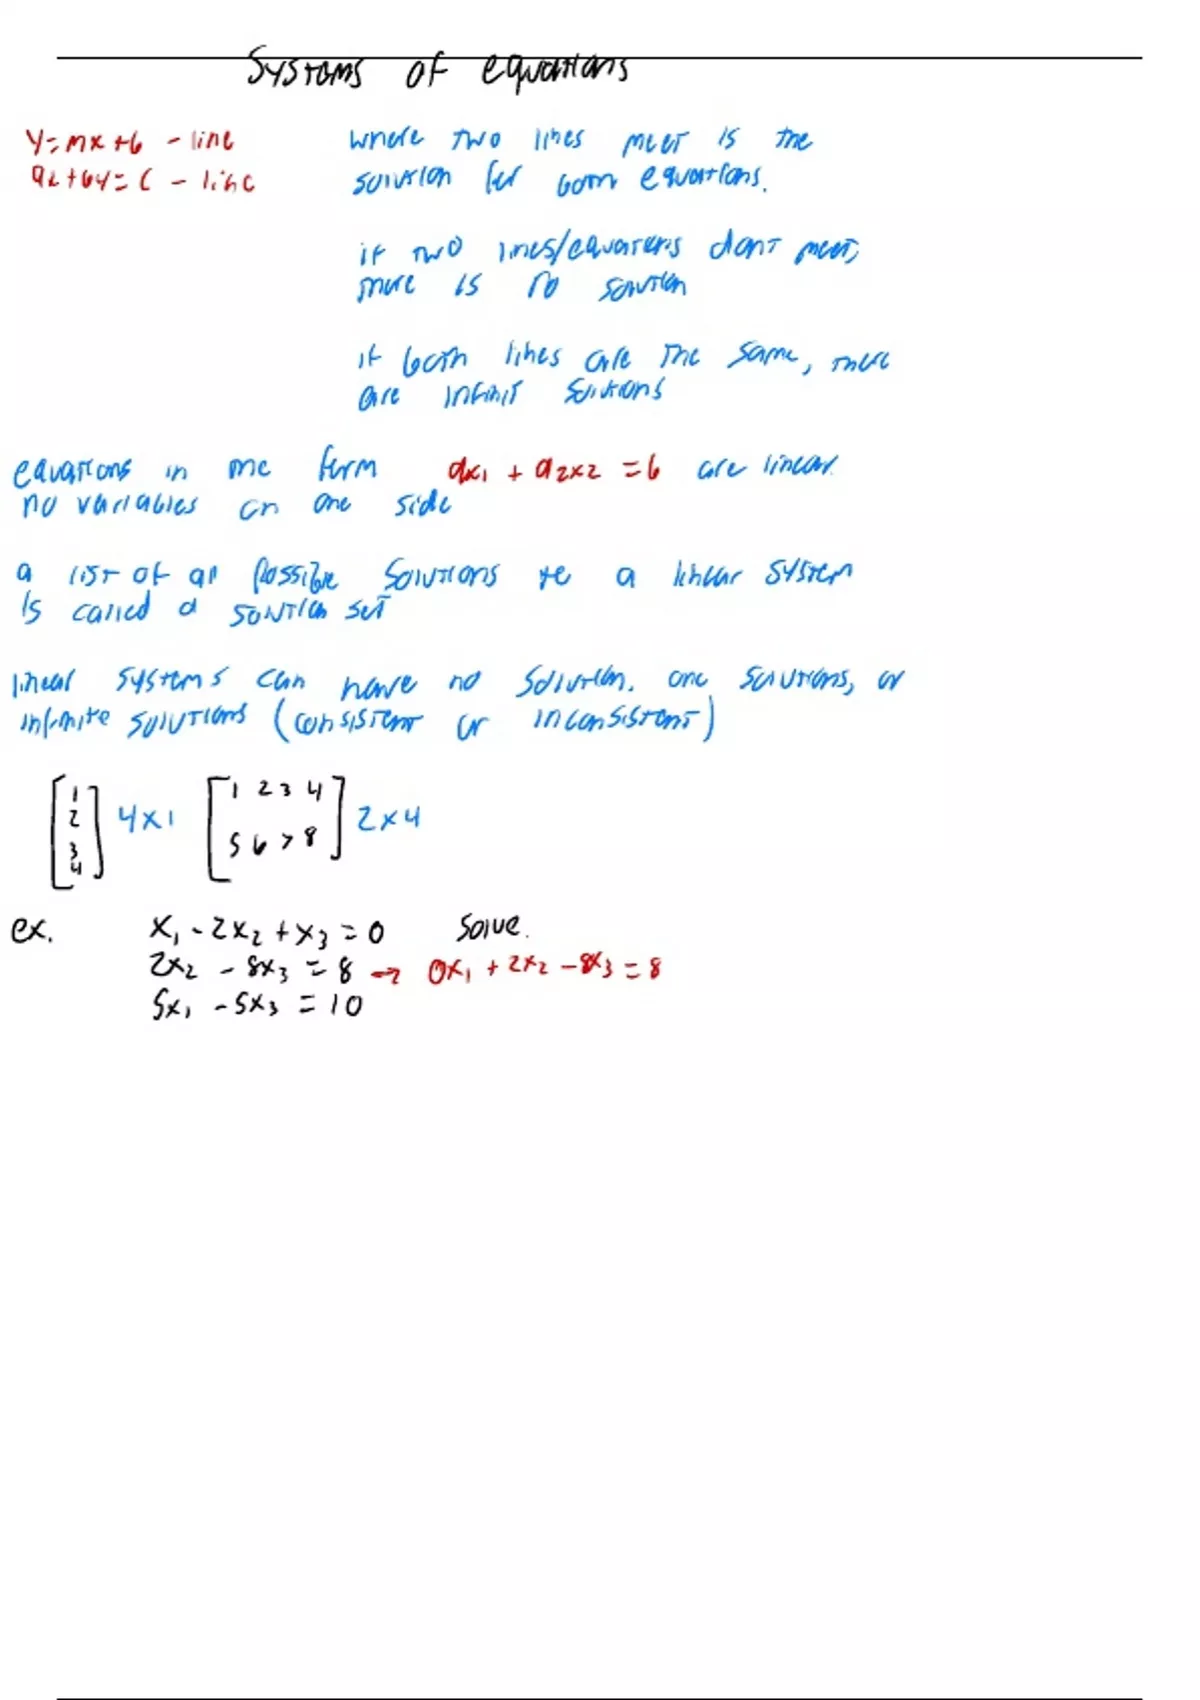 Systems of equations
y=mx+b - line
ax+by=c - line
where two lines meet is the
solution for both equations.
if two lines/equations don't meet,
there is no solution
if both lines are the same, there
are infinit solutions
equations in the form ax₁ + a₂x₂ = b are linear.
no variables on one side
a list of all possible solutions to a linear system
is called a solution set
linear systems can have no solution, one solutions, or
infinite solutions (consistent or inconsistent)
1
2
3
4
4x1
1 2 3 4
5 6 7 8
2x4
ex. x₁ - 2x₂ + x₃ = 0 Solve.
2x₂ - 8x₃ = 8 → 0x₁ + 2x₂ - 8x₃ = 8
5x₁ - 5x₃ = 10